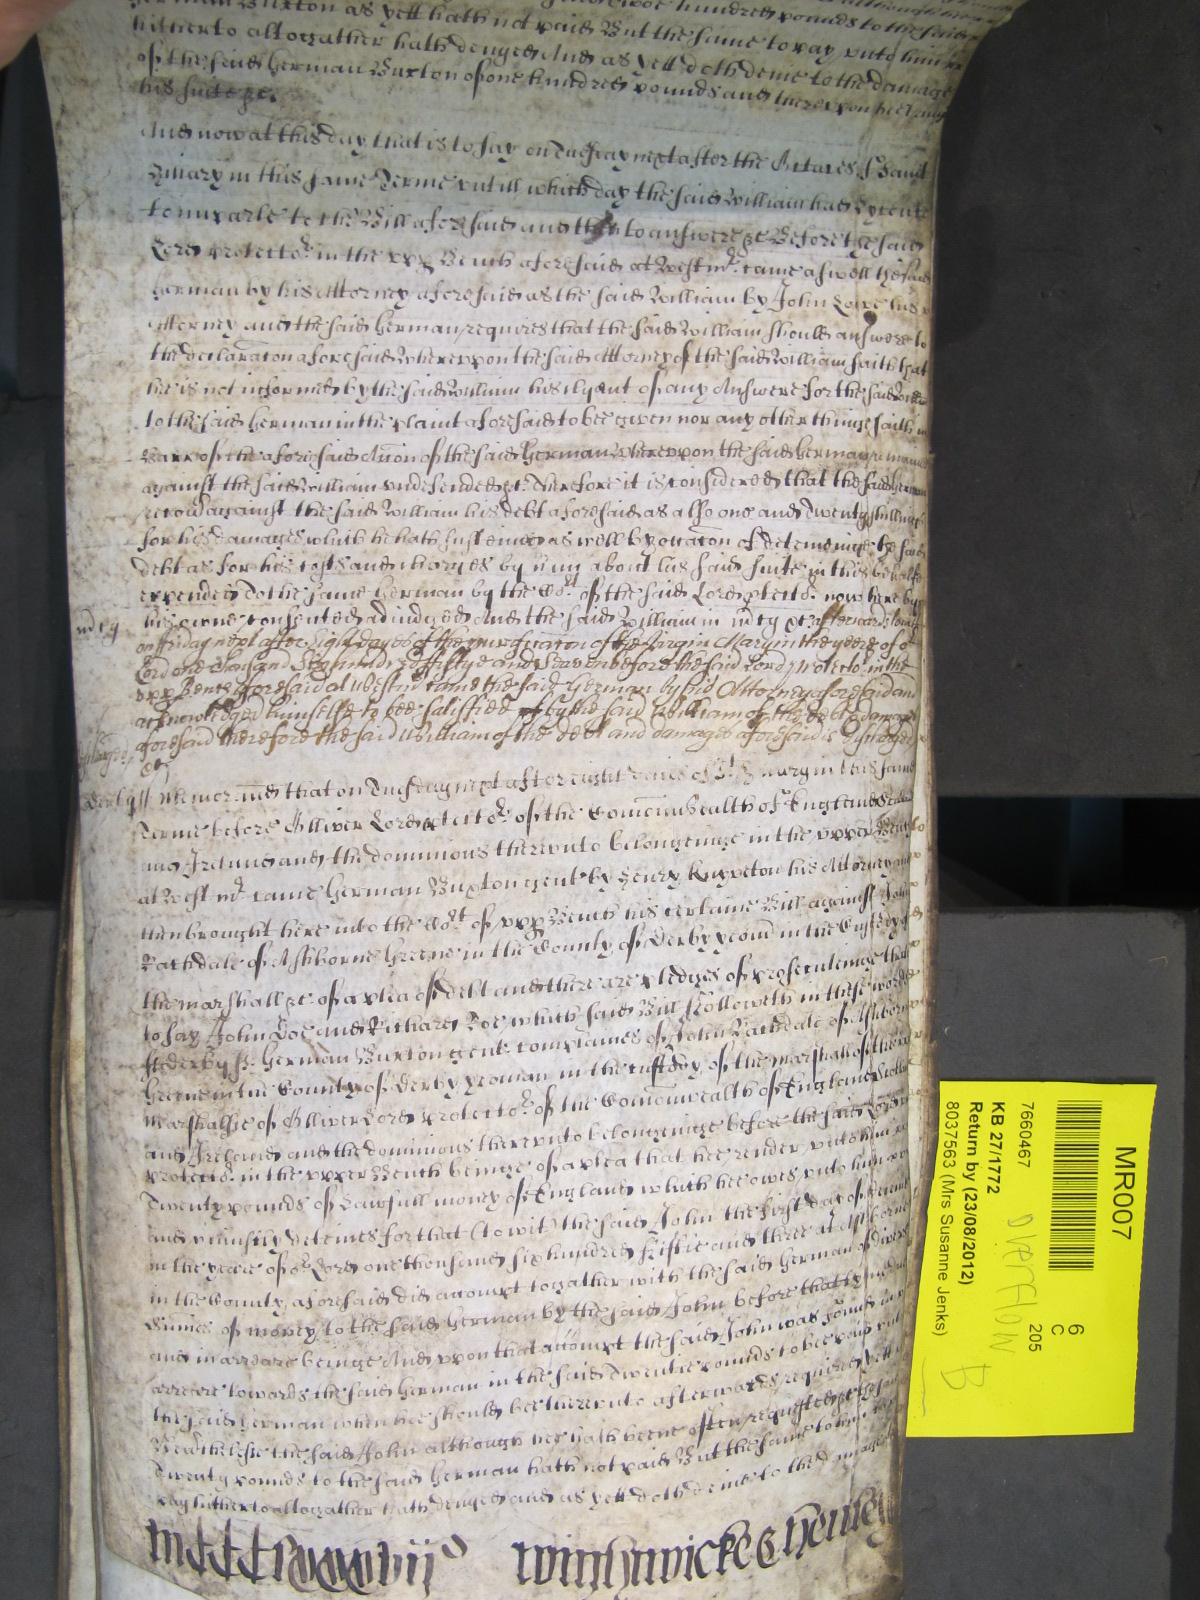 herman Buxton as yett hath not paid But the same to pay unto him
hitherto altogather hath denyed And as yett doth denie to the damage
of the said Herman Buxton of one hundred pounds and thereupon hee
his suite &c.
And now at this day that is to say on Tuesday next after the Octaves of Saint
Hillary in this same Terme untill which day the said William had
to imparle to the Bill aforesaid and then to answere &c Before the said
Lord Protector in the upper Bench aforesaid at Westmr. came aswell the said
Herman by his Attorney aforesaid as the said William by John Lowe his
Attorney and the said Herman requires that the said William should answere to
the declaracon aforesaid Whereupon the said Attorney of the said William saith that
he is not informed by the said William his clyent of any Answere for the said William
to the said Herman in the plaint aforesaid to bee given nor any other thinge saith in
barr of the aforesaid Accion of the said Herman Whereupon the said Herman remaines
against the said William undefended &c. Therefore it is considered that the said Herman
recover against the said William his debt aforesaid as also one and Twenty shillings
for his damages which he hath susteined as well by occacon of deteineinge the said
debt as for his costs and charges by him about his said suite in this behalfe
expended to the same Herman by the Cort. of the said Lord Protector. now here by
his owne consented adiudged And the said William in mercy &c afterwards
md cy
on Friday next after Eight dayes of the purificacon of the Virgin Mary in the yeere of or
Lord one Thousand Six hundred fiftye and Seaven before the said Lord Protector in the
upp Bench aforesaid at Westmr came the said Herman by his Attorney aforesaid and
acknowledged himselfe to bee satisfied by the said William of the debt & damages
aforesaid therefore the said William of the debt and damages aforesaid is
&c
Derby ss Memorand that on Tuesday next after eight daies of St. Martin this same
Terme before Olliver Lord Protector. of the Comonwealth of England
and Ireland and the dominions thereunto belongeinge in the upper Bench
at Westmr. came Herman Buxton gent by Henry Knyveton his Attorney and
then brought here into the Cort of upp Bench his certaine Bill against John
Rachdale of Ashborne Greene in the County of Derby yeom in the Custody of
the marshall &c. of a plea of debt and there are pledges of prosecuteinge that
to say John Doe and Richard Roe which said Bill followeth in these words
ss Derby ss. Herman Buxton gent. complaines of John Rachdale of Ashborne
Greene in the County of Derby yeoman in the custody of the marshall of the
marshalsie of Olliver Lord Protector. of the Comonwealth of England Scotland
and Ireland and the dominions thereunto belongeinge before the said Lord
Protector. in the upper Bench beinge of a plea that hee render unto him
Twenty pounds of lawfull money of England which hee owes unto him
and uniustly deteines for that (to wit) the said John the first day of
in the yeare of or Lord one thousand six hundred fiftie and three at Ashborne
in the County aforesaid did accompt togather with the said Herman of divers
summes of money to the said Herman by the said John before that tyme due
and in arreare beinge And upon that accompt the said John was found in
arreare towards the said Herman in the said Twentie pounds to bee paid
the said Herman when hee should bee thereunto afterwards required yett
Neverthelesse the said John although hee hath beene often requested &c the said
Twenty pounds to the said Herman hath not paid But the same to him
pay hitherto altogather hath denyed and as yett doth denie to the damage
Winchwicke & Henley
MR007
7660467
6
C
205
KB 27/1772
OVERFLOW
Return by (23/08/2012)
8037563 (Mrs Susanne Jenks)
B